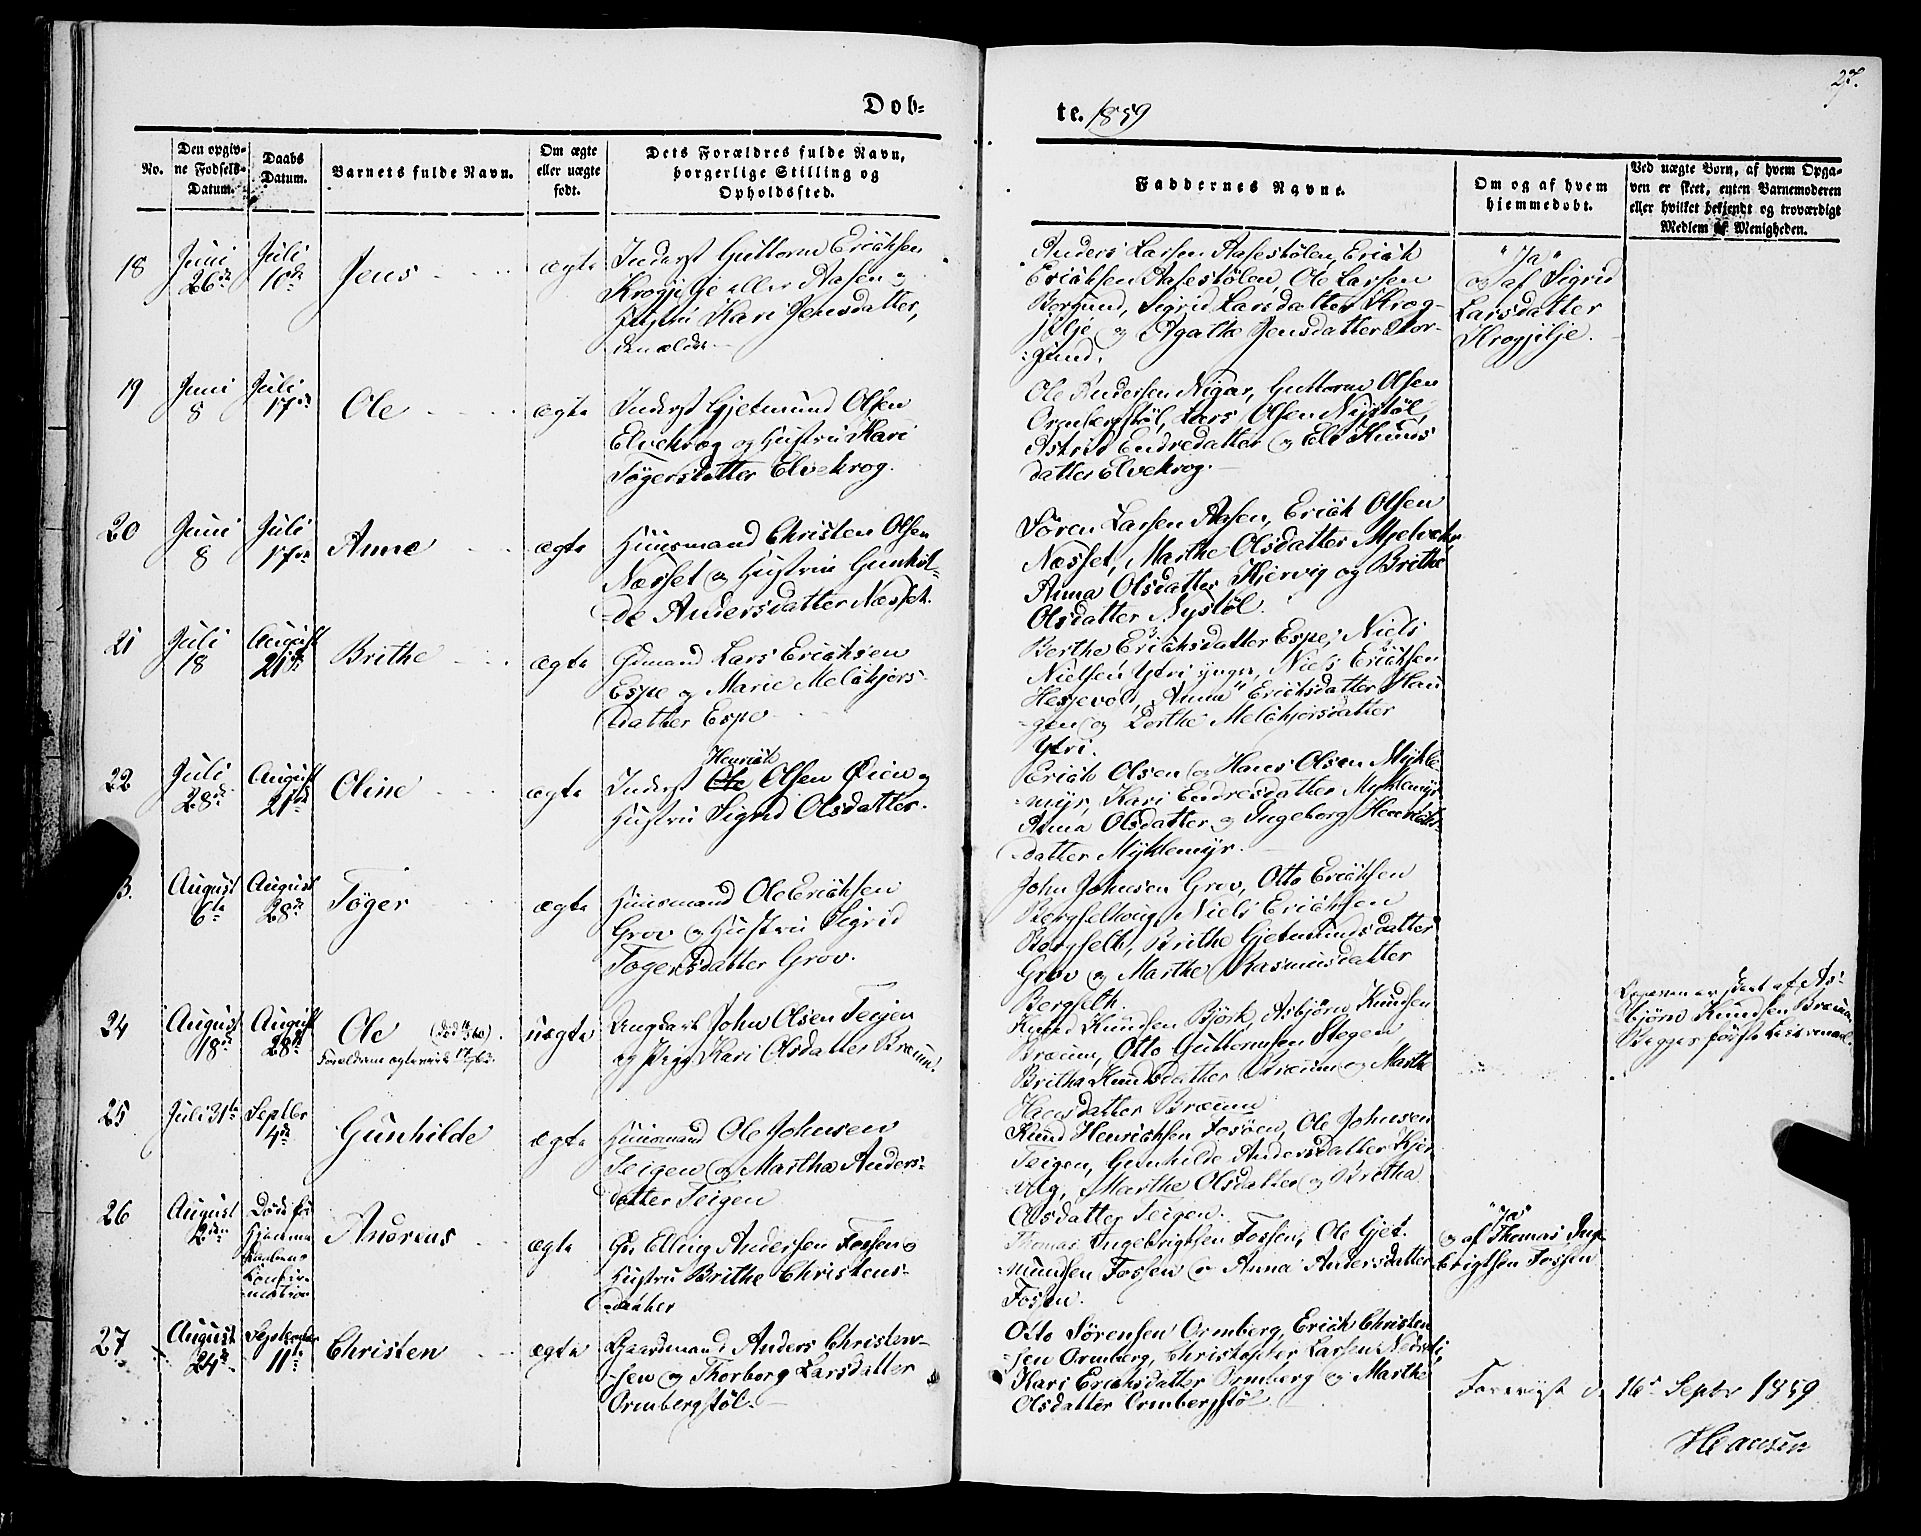 27.
Døb-
te. 1859
No.
Den opgiv-
ne Fødsels-
Datum.
Daabs
Datum.
Barnets fulde Navn.
Om ægte
eller uægte
født.
Dets Forældres fulde Navn,
borgerlige Stilling og
Opholdssted.
Faddernes Navne.
Om og af hvem
hjemmedøbt.
Ved uægte Børn, af hvem Opga-
ven er skeet, enten Barnemoderen
eller hvilket bekjendt og troværdigt
Medlem af Menigheden.
18
Juni
26de
Juli
10de
Jens
ægte
Inderst Guttorm Erichsen
Krogjilje eller Aasen og
Hustru Kari Jensdatter,
den ældre
Anders Larsen Aasestølen, Erich
Erichsen Aasestølen, Ole Larsen
Borgund, Sigrid Larsdatter Krog-
jilje og Agathe Jensdatter Bor-
gund.
"Ja"
og af Sigrid
Larsdatter
Krogjilje.
19
Juni
8
Juli
17de
Ole
ægte
Inderst Gjetmund Olsen
Elvekrog og Hustru Kari
Tøgersdatter Elvekrog.
Ole Andersen Nigar, Guttorm Olsen
Ormbergstøl, Lars Olsen Nystøl,
Astrid Endredatter og Eli Knuds
datter Elvekrog.
20
Juni
8
Juli
17de
Anna
ægte
Huusmand Christen Olsen
Næsset og Hustru Gunhil-
de Andersdatter Næsset.
Søren Larsen Aasen, Erich Olsen
Næsset, Marthe Olsdatter
Anna Olsdatter Kjervig og Brithe
Olsdatter Nystøl.
21
Juli
18
August
21de
Brithe
ægte
Gmand Lars Erichsen
Espe og Marie Melchjors-
datter Espe
Berthe Erichsdatter Espe, Niels
Nielsen Ytri ynger, Niels Erichsen
Hesjevoll, Anna Erichsdatter Hau
gen og Dorthe Melchiorsdatter
Ytri.
22
Juli
28de
August
21de
Oline
ægte
Henrich
Inderst Ole Olsen Øien og
Hustru Sigrid Olsdatter.
Erich Olsen og Hans Olsen Mykle
myr, Kari Endresdatter Myklemyr
Anna Olsdatter og Ingeborg Henrichs-
datter Myklemyr.
3.
August
6te
August
28de
Tøger
ægte
Huusmand Ole Erichsen
Grov og Hustru Sigrid
Togersdatter Grov.
John Johnsen Grov, Otto Erichsen
Niels Erichsen
Brithe Gjetmundsdatter
Grov og Marthe Rasmusdatter
24
August
18de
August
28de
Ole
uægte
Ungkarl John Olsen Teigen
og Pige Kari Olsdatter Bræum.
Knud Knudsen Björk, Asbjörn Knudsen
Bræum, Otto Guttormsen Stegen
Britha Knudsdatter Bræum og Marthe
Hansdatter Bræum
Opgaven er skeet af As-
bjørn Knudsen Bræum
Begges første Leiermaal.
25
Juli 31te
Septbr
4de
Gunhilde
ægte
Huusmand Ole Johnsen
Teigen og Martha Anders-
datter Teigen
Knud Henrichsen Fosøen, Ole Johnsen
Teigen, Gunhilde Andersdatter Kjer
vig, Marthe Olsdatter og Britha
Olsdatter Teigen.
26
August
2den
Døde før
Hjemme
daabens
Konfir-
mation
Andreas
ægte
Gr. Elling Andersen Fossen og
Hustru Brithe Christens-
datter
Thomas Ingebrigtsen Fossen, Ole Gjet-
mundsen Fossen og Anna Andersdatter
Fossen.
"Ja"
og af Thomas Ing-
ebrigtsen Fossen
27
August
24de
September
11te
Christen
ægte
Gaardmand Anders Christen-
sen og Thorborg Larsdatter
Ormbergstøl.
Otto Sørensen Ormberg, Erich Christen
sen Ormberg, Christopher Larsen
Kari Erichsdatter Ormberg og Marthe
Olsdatter Ormbergstøl
Forevist d 16de Septbr 1859